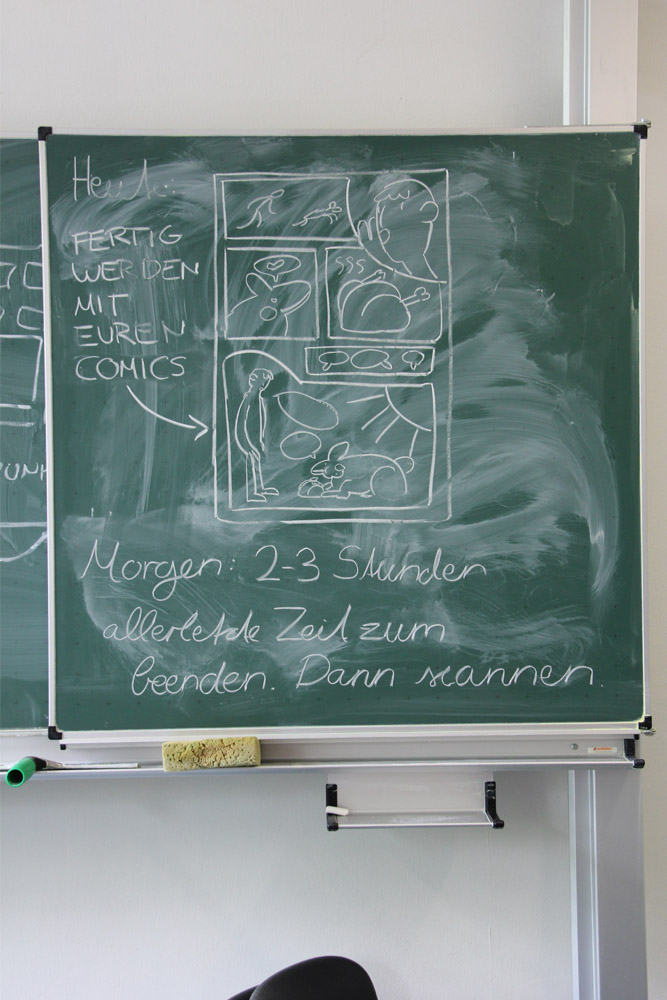 Heute:
FERTIG
WERDEN
MIT
EUREN
COMICS
Morgen: 2-3 Stunden
allerletzte Zeit zum
beenden. Dann scannen.